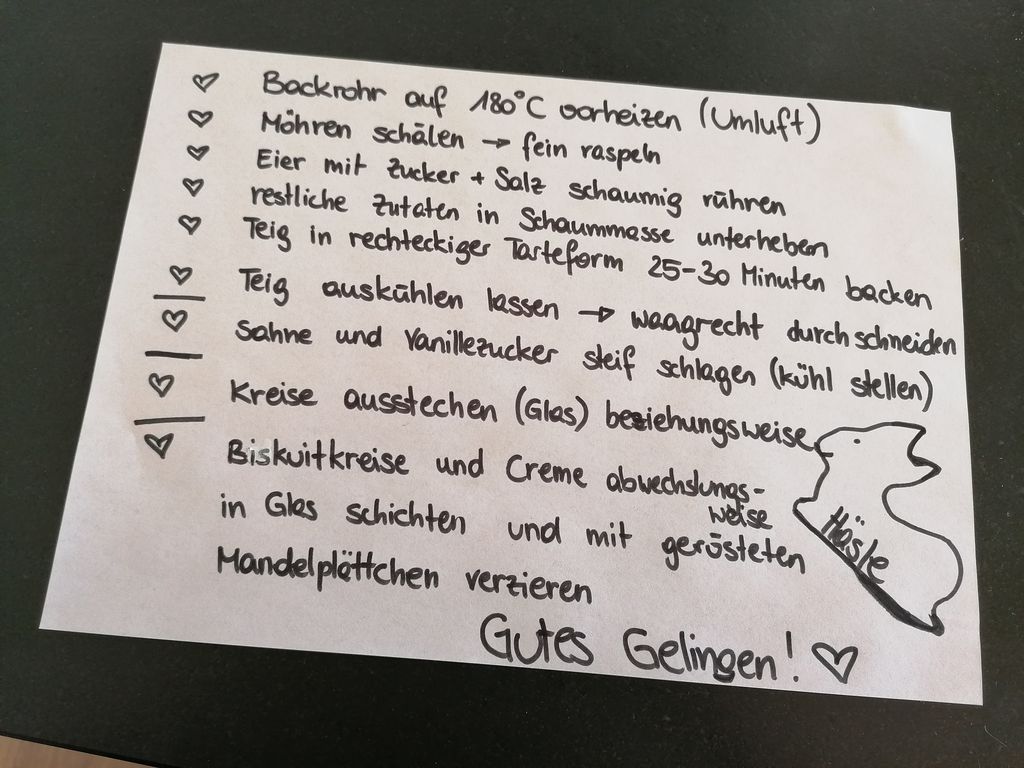 ♡ Backrohr auf 180°C vorheizen (Umluft)
♡ Möhren schälen → fein raspeln
♡ Eier mit Zucker + Salz schaumig rühren
♡ restliche Zutaten in Schaummasse unterheben
♡ Teig in rechteckiger Tarteform 25-30 Minuten backen
♡ Teig auskühlen lassen → waagrecht durchschneiden
♡ Sahne und Vanillezucker steif schlagen (kühl stellen)
♡ Kreise ausstechen (Glas) beziehungsweise
♡ Biskuitkreise und Creme abwechslungs-
weise
in Glas schichten und mit gerösteten
Mandelplättchen verzieren
Häsle
Gutes Gelingen! ♡